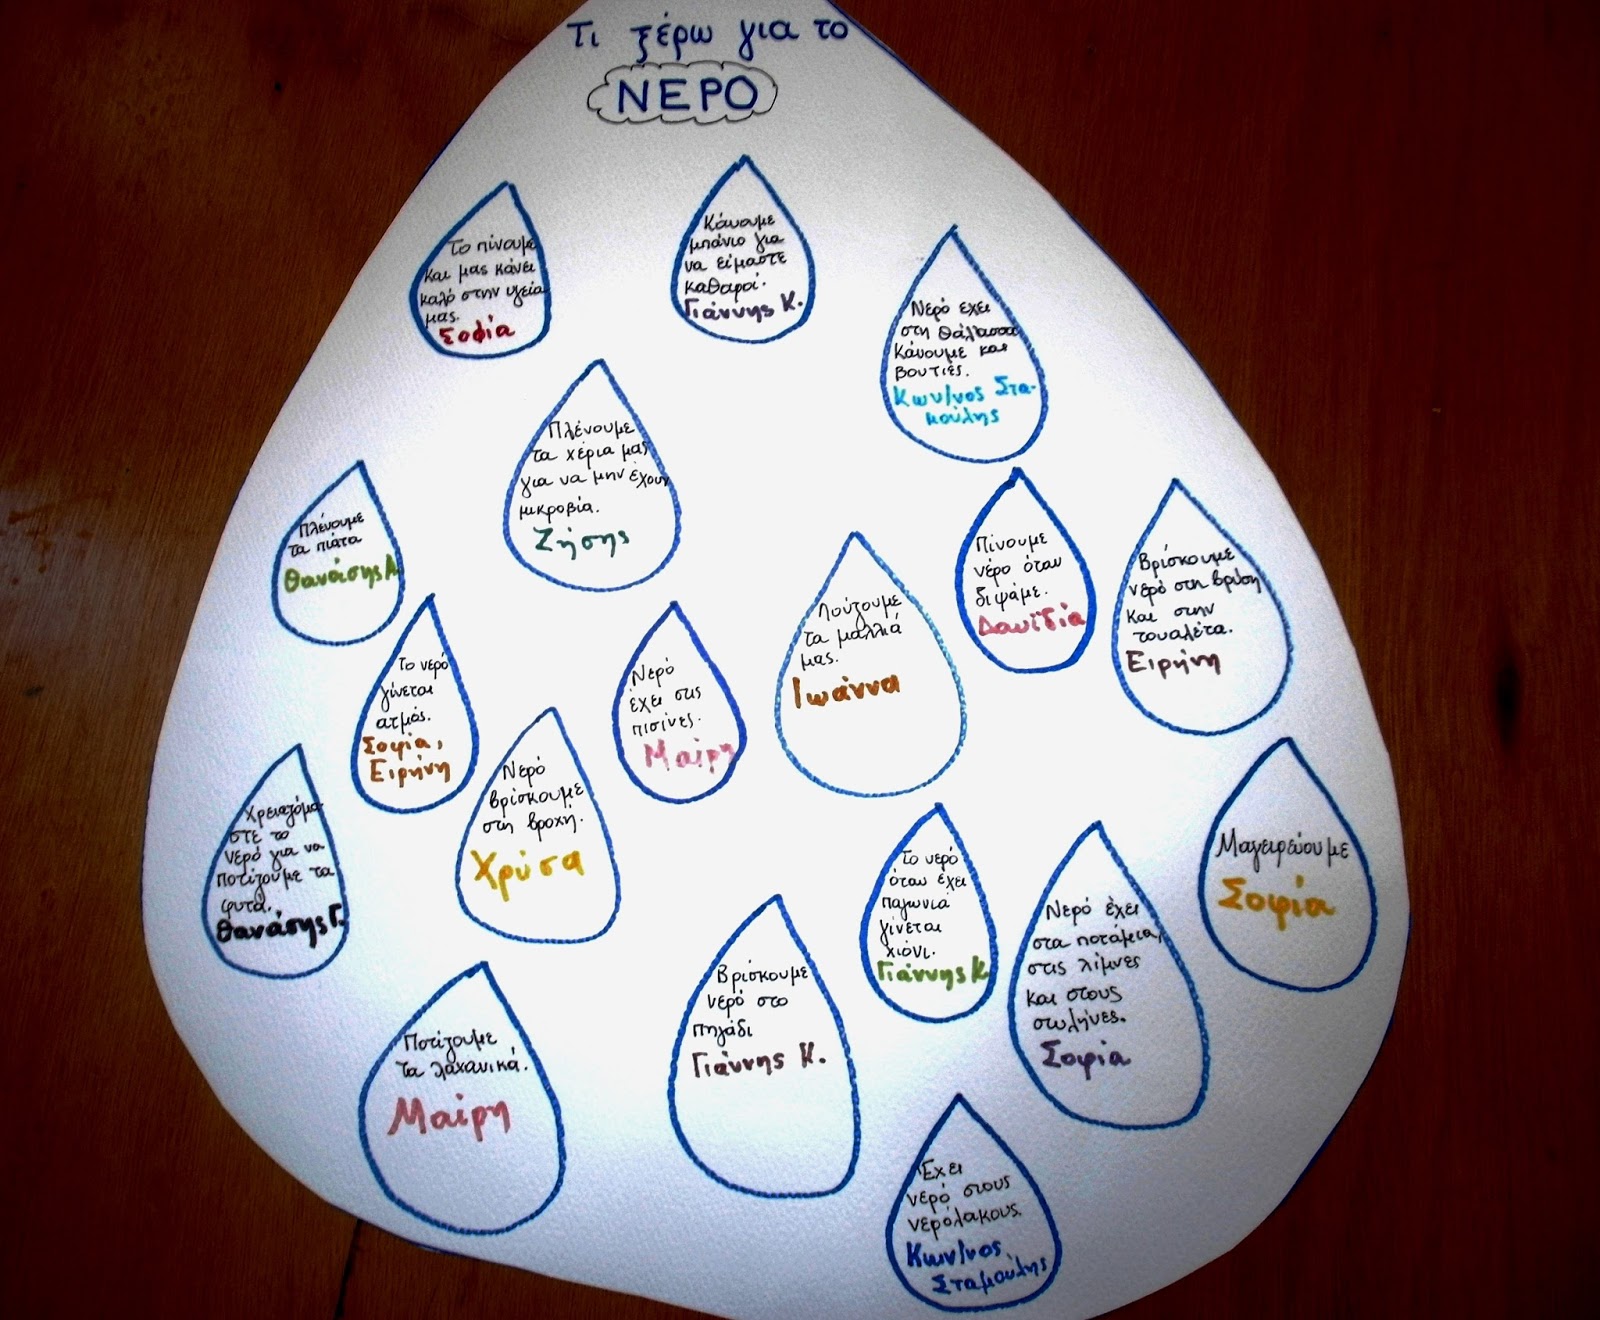 Τι ξέρω για το
ΝΕΡΟ
Το πίνουμε
και μας κάνει
καλό στην υγεία
μας.
Σοφία
Κάνουμε
μπάνιο για
να είμαστε
καθαροί.
Γιάννης Κ.
Νερό έχει
στη θάλασσα
κάνουμε και
βουτιές.
Κων/νος Στα-
μούλης
Πλένουμε
τα χέρια μας
για να μην έχουν
μικροβία.
Ζήσης
Πλένουμε
τα πιάτα
Θανάσης Λ.
Πίνουμε
νέρο όταν
διψάμε.
Δαυϊδία
Βρίσκουμε
νερό στη βρύση
και στην
τουαλέτα.
Ειρήνη
Λούζουμε
τα μαλλιά
μας.
Ιωάννα
Το νερό
γίνεται
ατμός.
Σοφία,
Ειρήνη
Νερό
έχει στις
πισίνες.
Μαίρη
Νερό
βρίσκουμε
στη βροχή.
Χρύσα
Χρειαζόμα-
στε το
νερό για να
ποτίζουμε τα
φυτά.
Θανάσης Γ.
Μαγειρεύουμε
Σοφία
Το νερό
όταν έχει
παγωνιά
γίνεται
χιόνι.
Γιάννης Κ.
Νερό έχει
στα ποτάμια,
στις λίμνες
και στους
σωλήνες.
Σοφία
Βρίσκουμε
νερό στο
πηγάδι
Γιάννης Κ.
Ποτίζουμε
τα λαχανικά.
Μαίρη
Έχει
νερό στους
νερόλακους.
Κων/νος
Σταμούλης